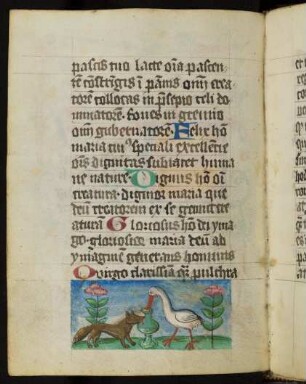 pascis tuo lacte oīa pascen-
tē cōstrīgis ī pānis oīm crea
torē collocas in p̄sepio celi do
minatorē. foues in gremio
oīm gubernatorē. Felix hō
maria cui spēali excellētie
oīs dignitas subiacet huma
ne nature. Dignus hō oī
creatura. dignior maria que
deū creatorem ex se genuit cre
aturā Gloriosus hō dei yma
go. gloriosior maria deū ad
ymaginē generans hominis
O virgo clarissima pulchra